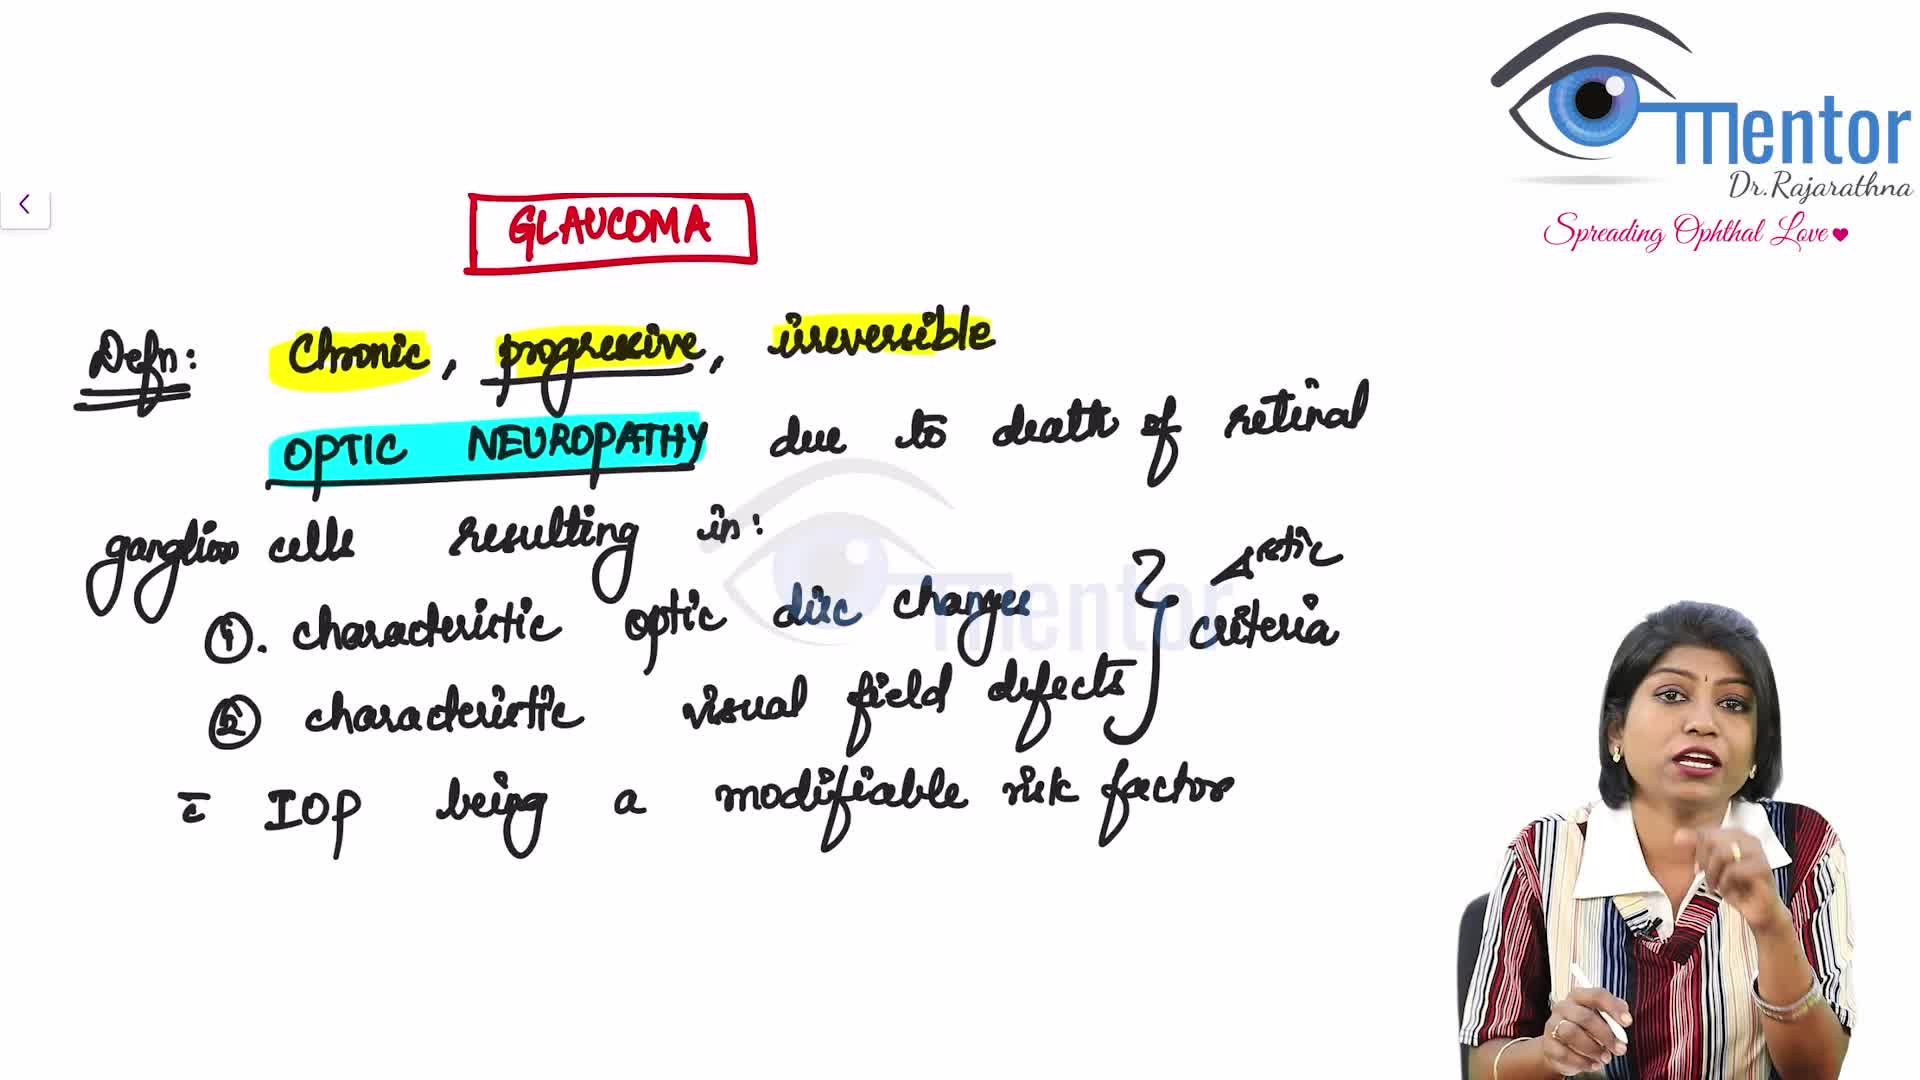 mentor
Dr.Rajarathna
Spreading Ophthal Love
GLAUCOMA
Defn: Chronic, progressive, irreversible
OPTIC NEUROPATHY due to death of retinal
ganglion cells resulting in:
①. characteristic optic disc changes
② characteristic visual field defects
criteria
c̄ IOP being a modifiable risk factor
mentor